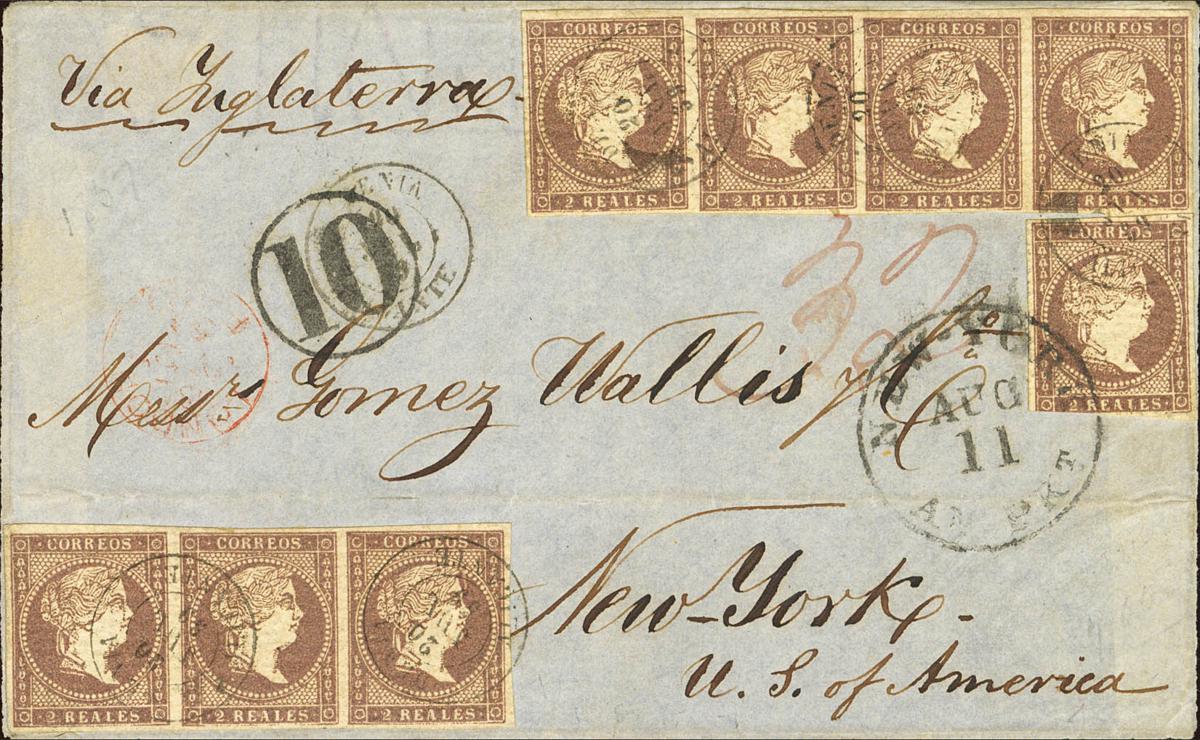 Via Inglaterra
CORREOS CORREOS CORREOS CORREOS
2 REALES 2 REALES 2 REALES 2 REALES
10
DENIA
Messrs Gomez Wallis y Ca
2 REALES
NEW-YORK
AUG
11
AM PKT
CORREOS CORREOS CORREOS
2 REALES 2 REALES 2 REALES
New-York-
U. S. of America